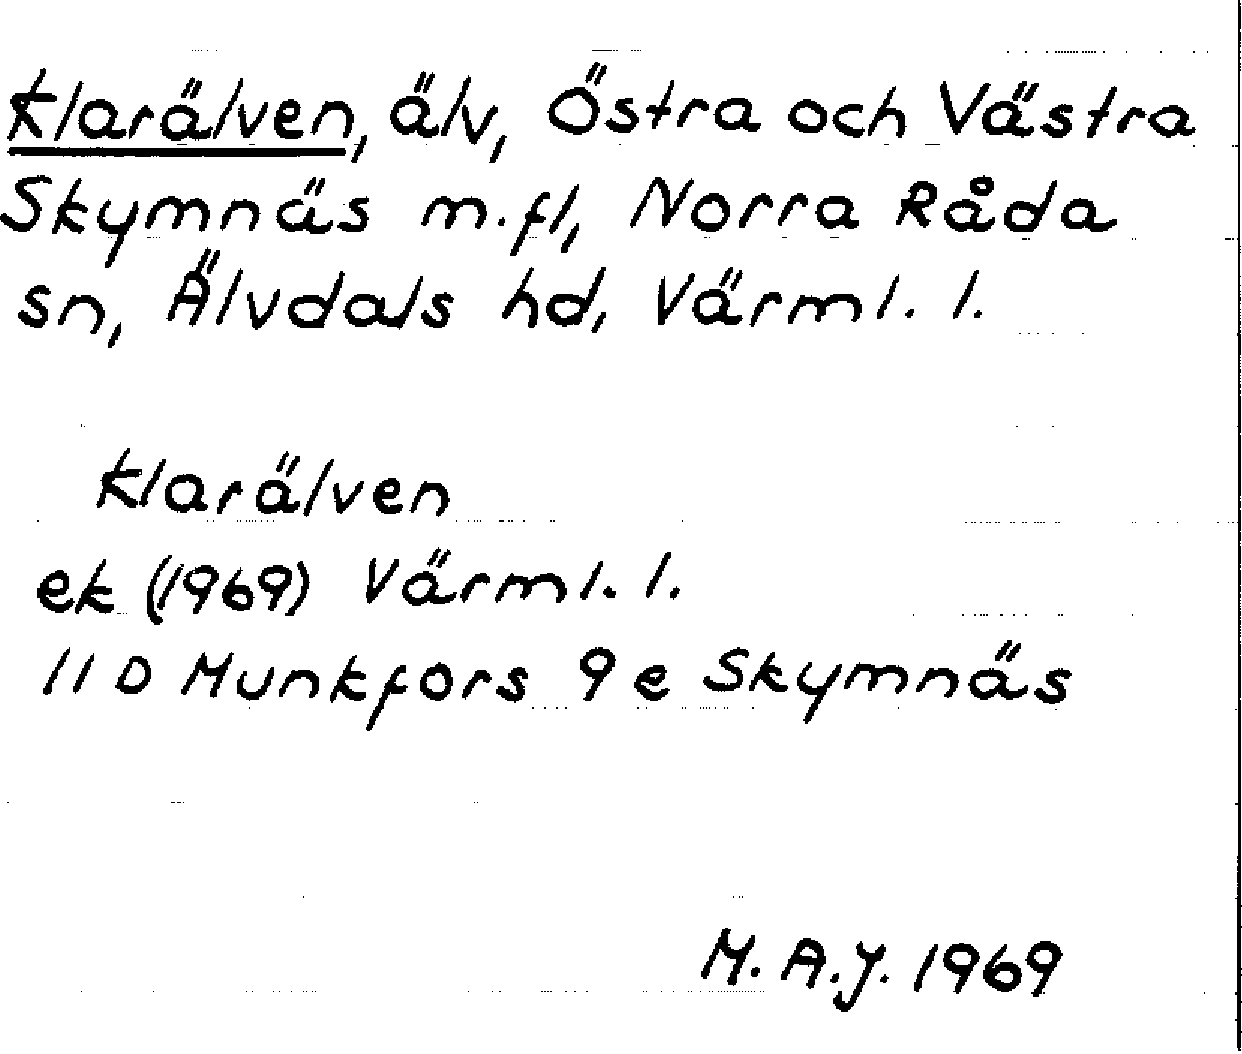 Klarälven, älv, Östra och Västra
Skymnäs m.fl, Norra Råda
sn, Älvdals hd, Värml. l.
Klarälven
ek (1969) Värml. l.
11 D Munkfors 9 e Skymnäs
M. A. J. 1969